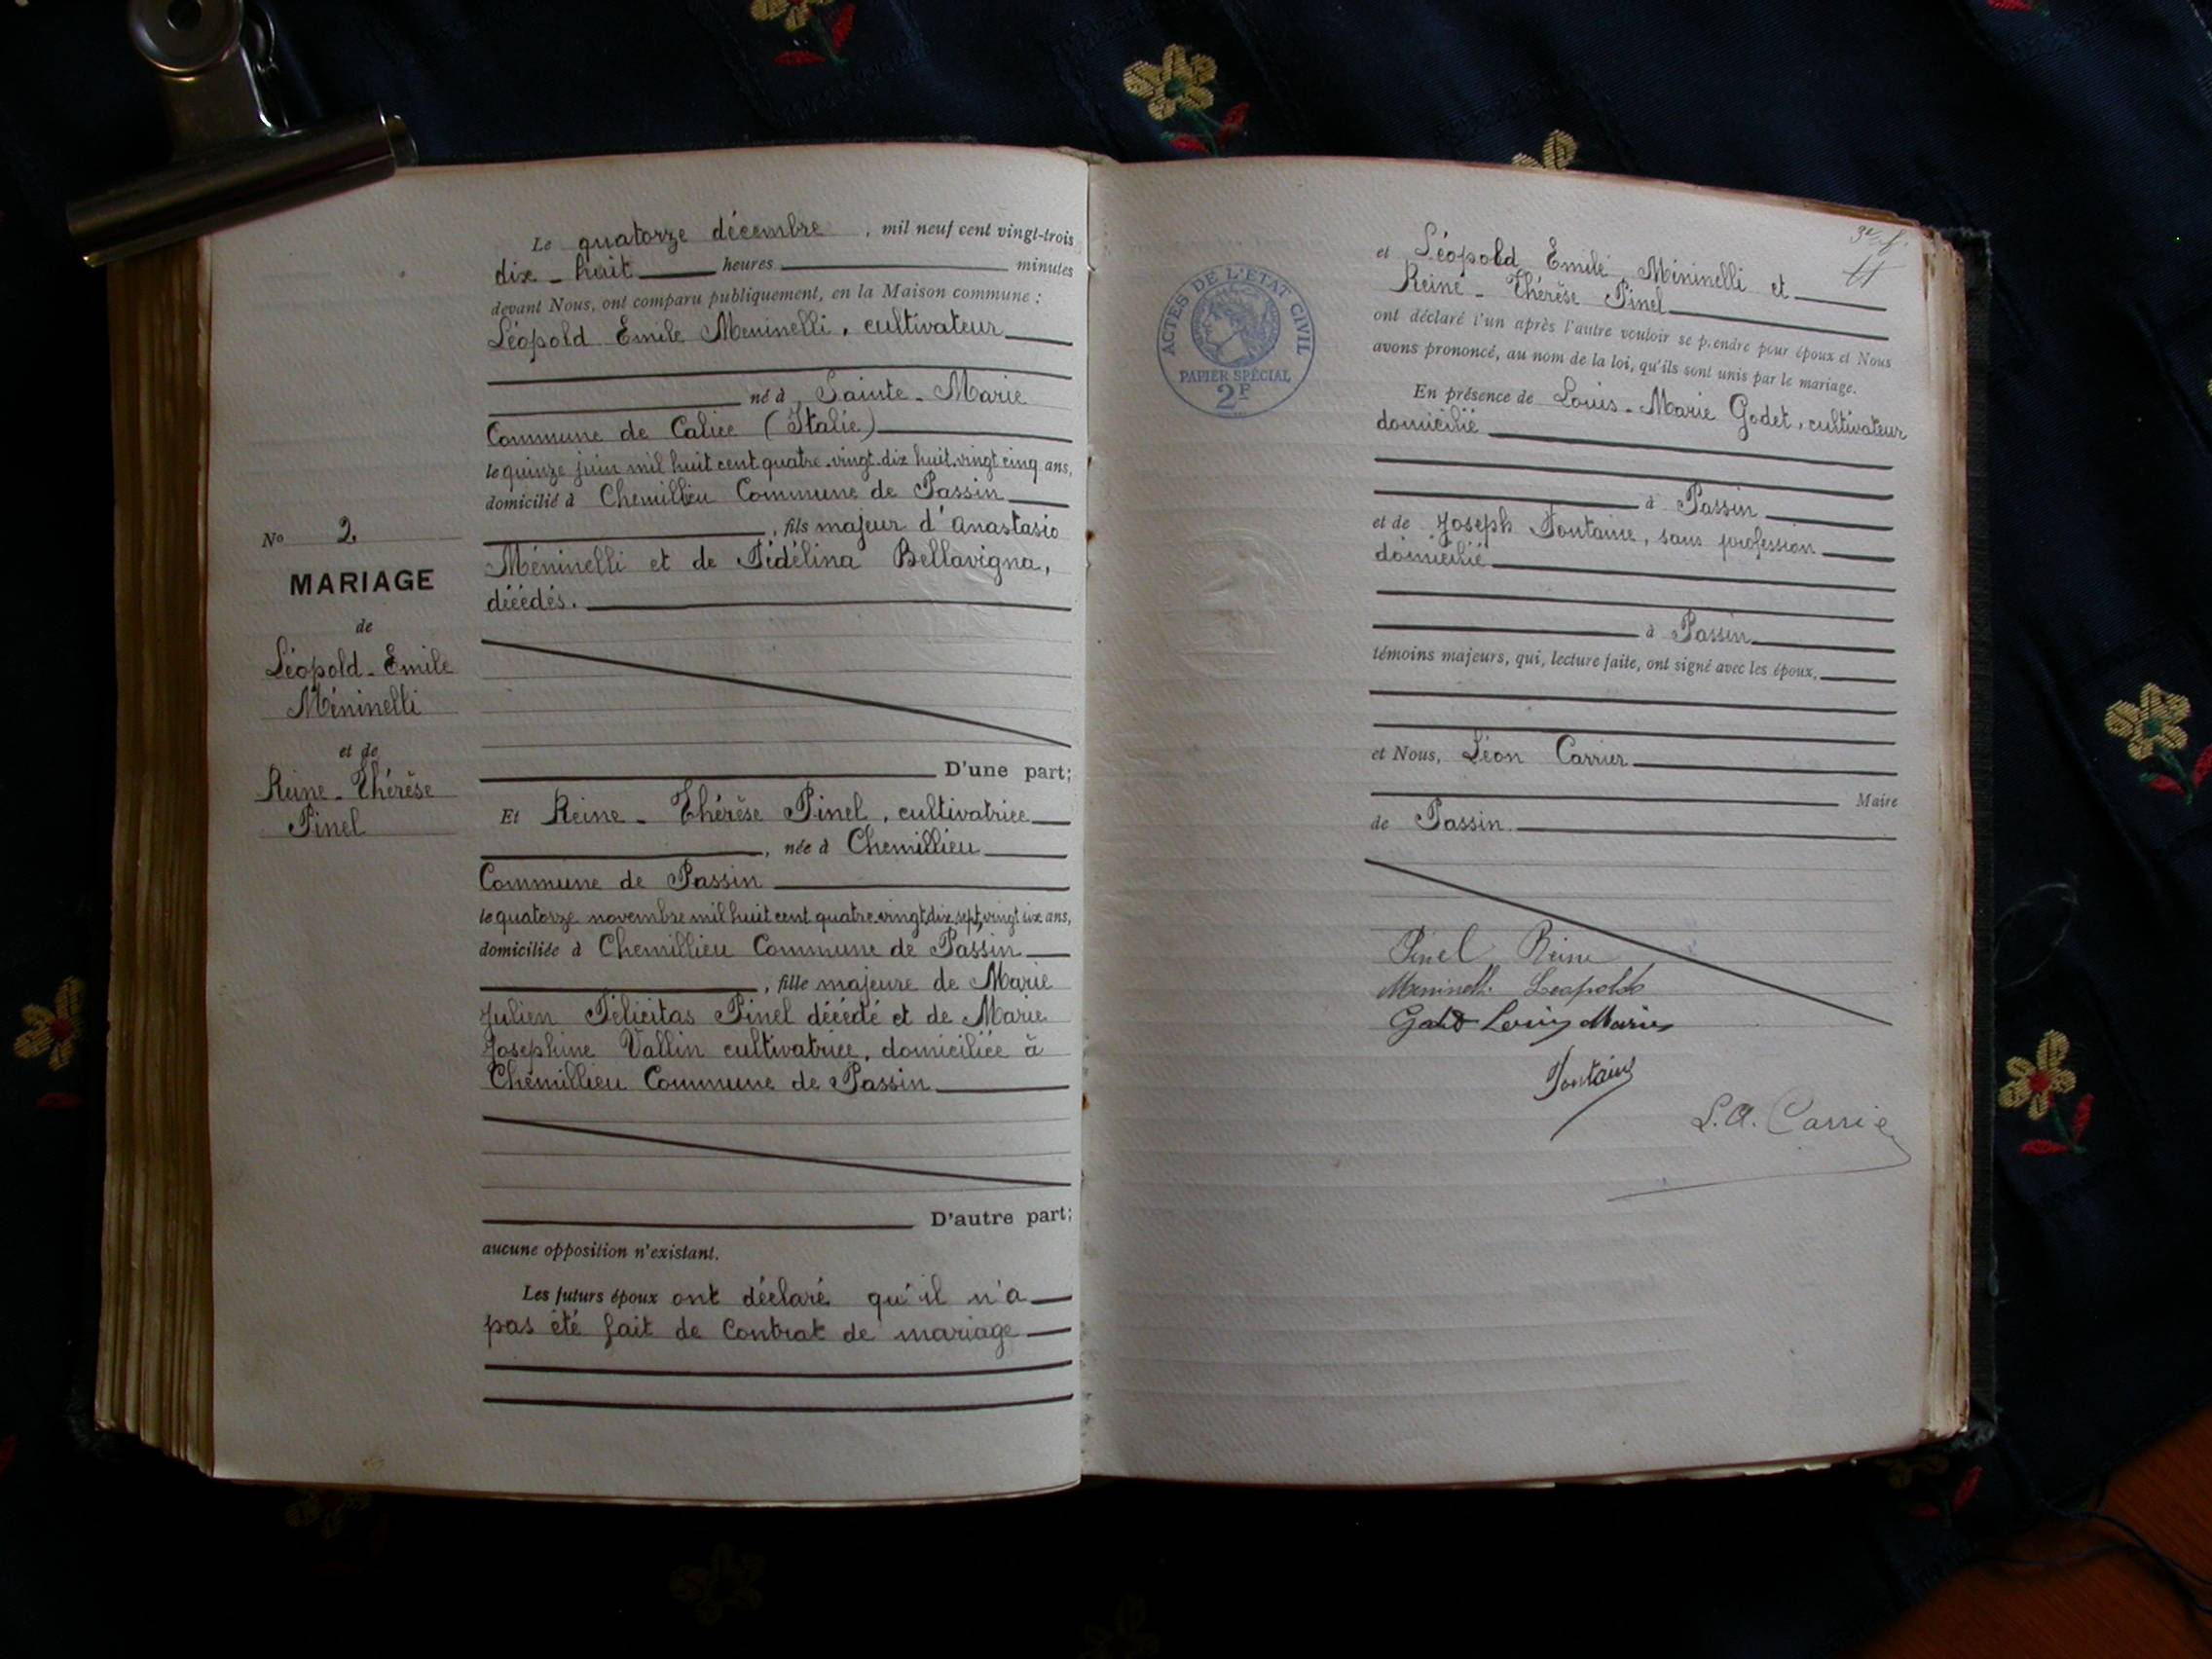 Le quatorze décembre, mil neuf cent vingt-trois
dix-huit heures minutes
devant Nous, ont comparu publiquement, en la Maison commune :
Léopold Emile Meninelli, cultivateur
né à Sainte-Marie
Commune de Calice (Italie)
le quinze juin mil huit cent quatre-vingt-dix huit, vingt cinq ans,
domicilié à Chemillieu Commune de Passin
, fils majeur d'Anastasio
Méninelli et de Fidélina Bellavigna,
décédés.
D'une part;
No 2
MARIAGE
de
Léopold-Emile
Méninelli
et de
Reine-Thérèse
Pinel
Et Reine-Thérèse Pinel, cultivatrice
, née à Chemillieu
Commune de Passin
le quatorze novembre mil huit cent quatre-vingt dix sept, vingt six ans,
domiciliée à Chemillieu Commune de Passin
, fille majeure de Marie
Julien Félicitas Pinel décédé et de Marie
Josephine Vallin cultivatrice, domiciliée à
Chemillieu Commune de Passin
D'autre part;
aucune opposition n'existant.
Les futurs époux ont déclaré qu'il n'a
pas été fait de Contrat de mariage
ACTES DE L'ETAT CIVIL
PAPIER SPÉCIAL
2F
et Léopold Emile Mininelli et
Reine-Thérèse Pinel
ont déclaré l'un après l'autre vouloir se prendre pour époux et Nous
avons prononcé, au nom de la loi, qu'ils sont unis par le mariage.
En présence de Louis-Marie Godet, cultivateur
domicilié
à Passin
et de Joseph Fontaine, sans profession
domicilié
à Passin
témoins majeurs, qui, lecture faite, ont signé avec les époux,
et Nous, Léon Carrier
Maire
de Passin
Pinel Reine
Meninelli Leopoldo
Godet Louis Marius
Fontaine
L.A. Carrie